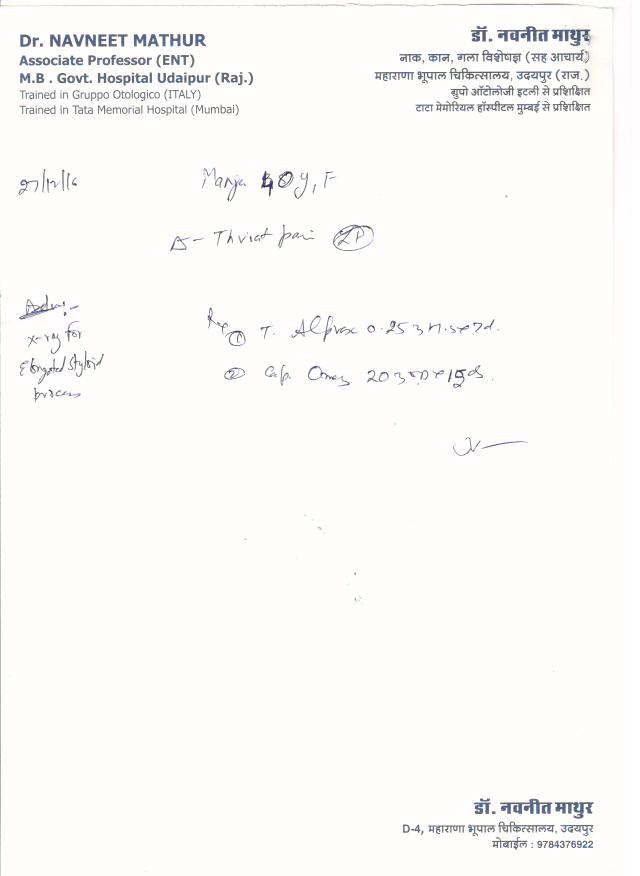 Dr. NAVNEET MATHUR
Associate Professor (ENT)
M.B . Govt. Hospital Udaipur (Raj.)
Trained in Gruppo Otologico (ITALY)
Trained in Tata Memorial Hospital (Mumbai)
डॉ. नवनीत माथुर
नाक, कान, गला विशेषज्ञ (सह आचार्य)
महाराणा भूपाल चिकित्सालय, उदयपुर (राज.)
ग्रुपो ऑटोलोजी इटली से प्रशिक्षित
टाटा मेमोरियल हॉस्पीटल मुम्बई से प्रशिक्षित
27/12/16
40 y, F
Throat pain
Adv:-
x-ray for
Elongated Styloid
process
① T. Alprax 0.25
② Cap. Omez 20
डॉ. नवनीत माथुर
D-4, महाराणा भूपाल चिकित्सालय, उदयपुर
मोबाईल : 9784376922